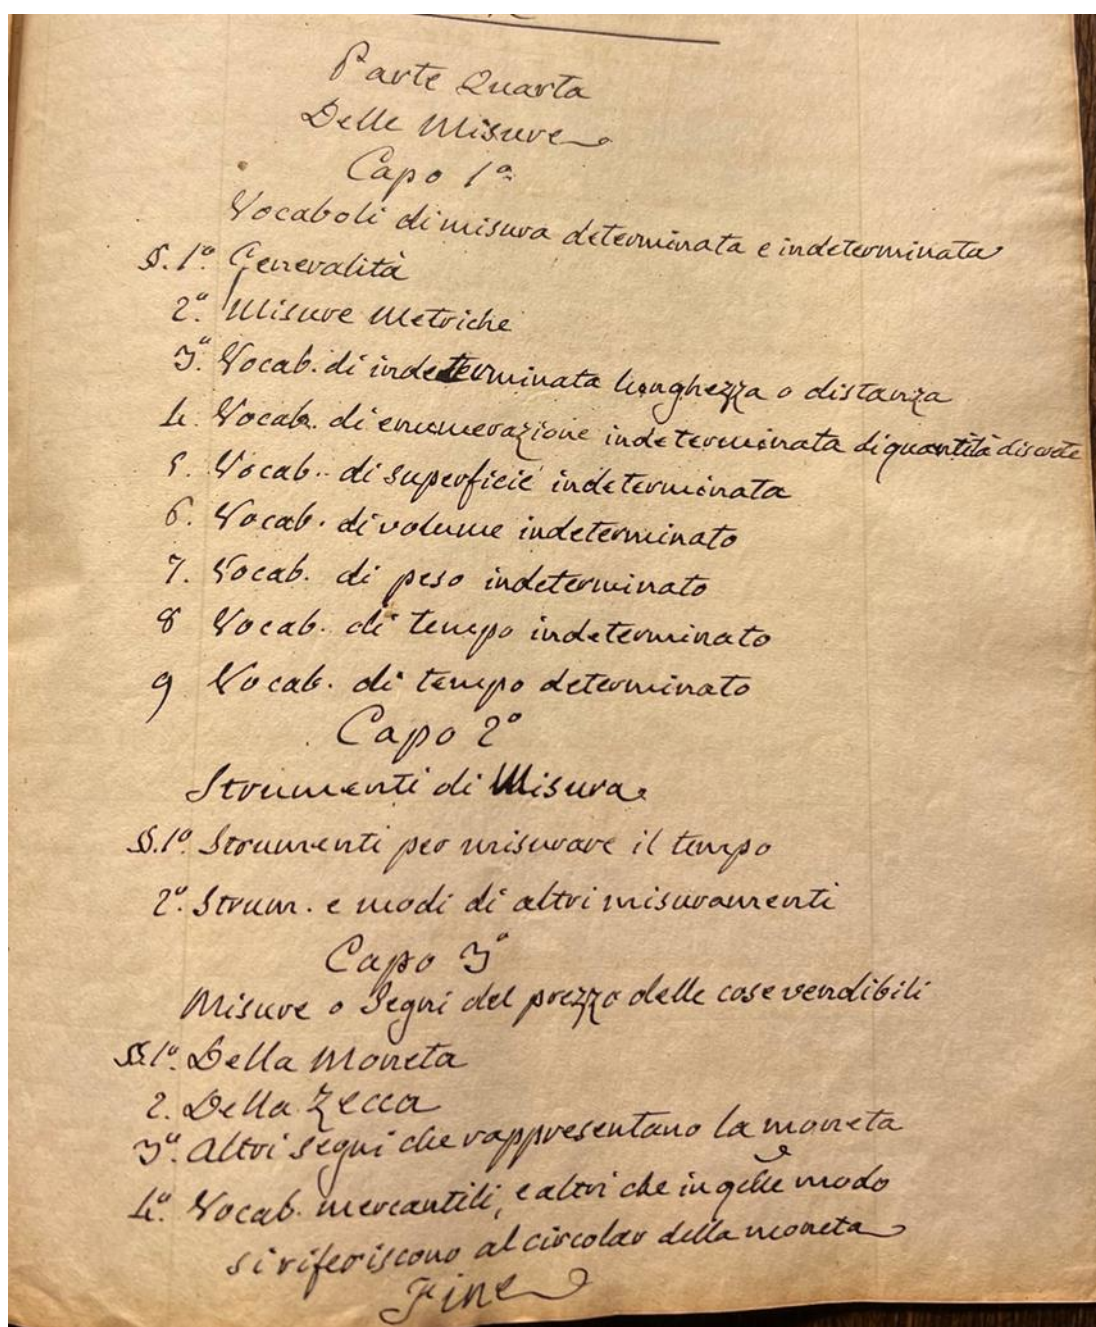 Parte Quarta
Delle Misure
Capo 1º
Vocaboli di misura determinata e indeterminata
§. 1º. Generalità
2º. Misure Metriche
3º. Vocab. di indeterminata lunghezza o distanza
4. Vocab. di enumerazione indeterminata di quantità discrete
5. Vocab. di superficie indeterminata
6. Vocab. di volume indeterminato
7. Vocab. di peso indeterminato
8 Vocab. di tempo indeterminato
9 Vocab. di tempo determinato
Capo 2º
Strumenti di Misura
§. 1º. Strumenti per misurare il tempo
2º. Strum. e modi di altri misuramenti
Capo 3º
Misure o Segni del prezzo delle cose vendibili
§. 1º. Della Moneta
2. Della Zecca
3º. Altri segni che rappresentano la moneta
4º. Vocab. mercantili, e altri che in qche modo
si riferiscono al circolar della moneta
Fine